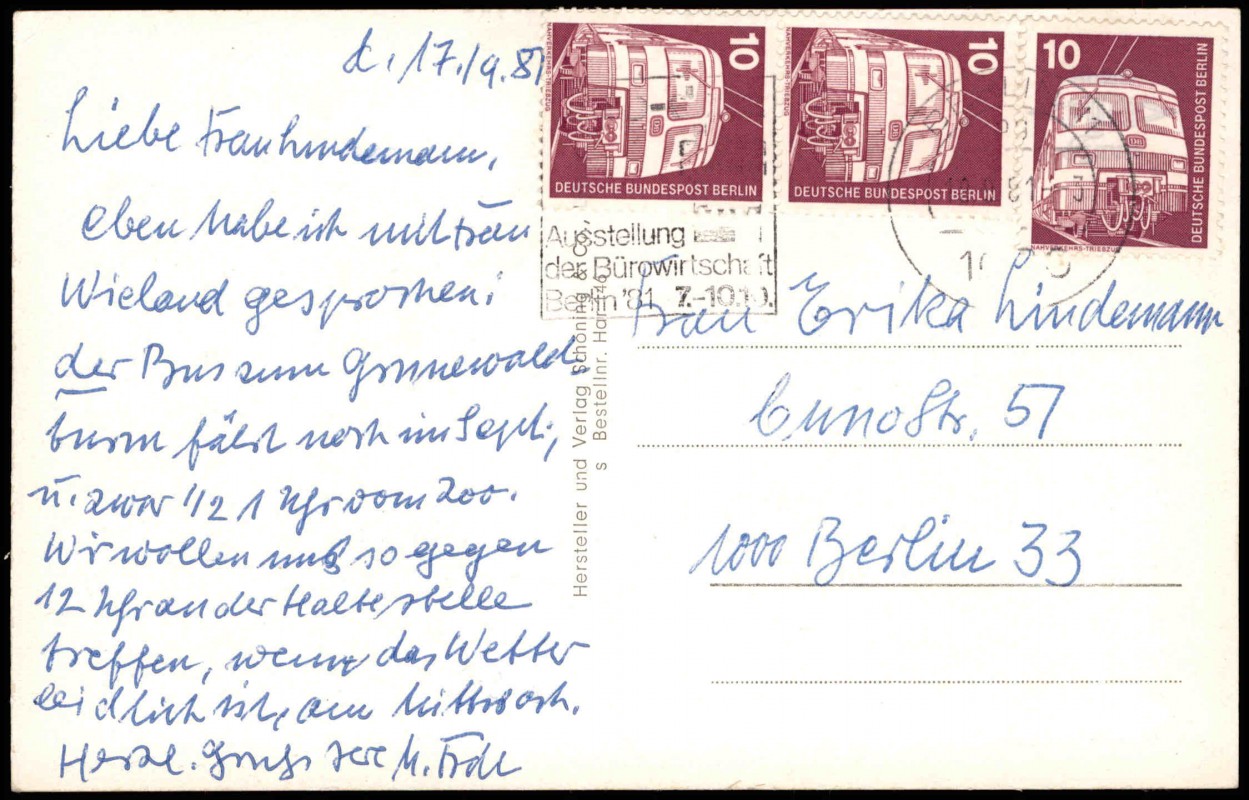 d. 17./9.81
Liebe Frau Lindemann,
eben habe ich mit Frau
Wieland gesprochen:
der Bus zum Grunewald-
turm fährt noch im Sept.,
u. zwar 1/2 1 Uhr vom Zoo.
Wir wollen uns so gegen
12 Uhr an der Haltestelle
treffen, wenn das Wetter
leidlich ist, am Mittwoch.
Herzl. Gruß Ihre M.
10
NAHVERKEHRS-TRIEBZUG
DEUTSCHE BUNDESPOST BERLIN
10
NAHVERKEHRS-TRIEBZUG
DEUTSCHE BUNDESPOST BERLIN
10
NAHVERKEHRS-TRIEBZUG
DEUTSCHE BUNDESPOST BERLIN
Ausstellung
der Bürowirtschaft
Berlin '81 7.-10.10.
81
Hersteller und Verlag Schöning & Co.
s Bestellnr.
Frau Erika Lindemann
Cunostr. 57
1000 Berlin 33